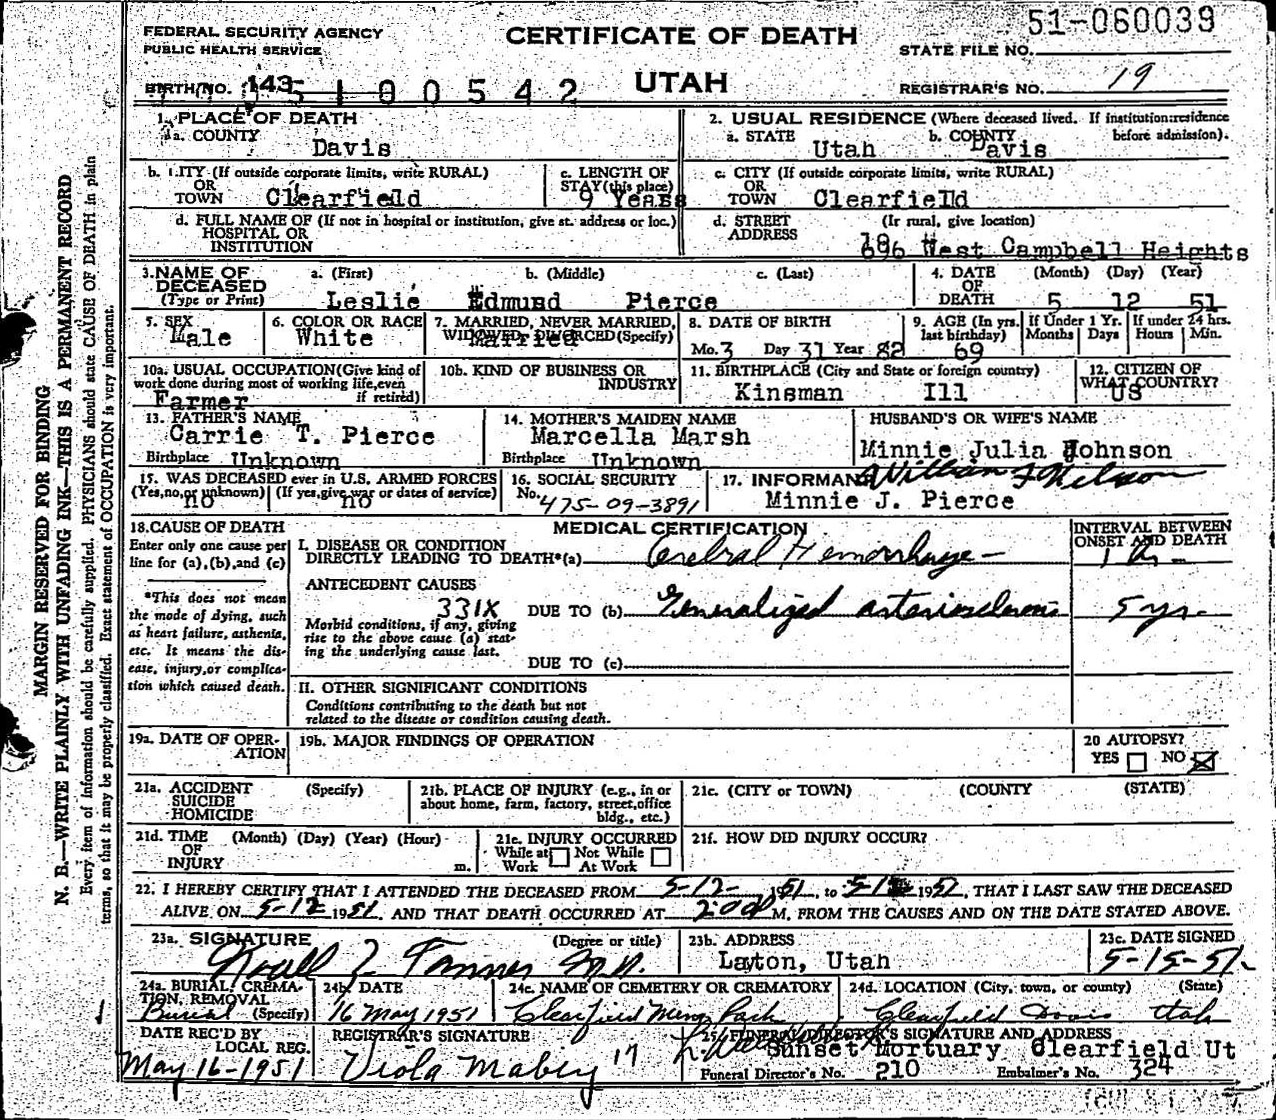 51-060039
FEDERAL SECURITY AGENCY
PUBLIC HEALTH SERVICE
CERTIFICATE OF DEATH
STATE FILE NO.
BIRTH NO. 143 5 1 0 0 5 4 2
UTAH
REGISTRAR'S NO. 19
1. PLACE OF DEATH
a. COUNTY
Davis
2. USUAL RESIDENCE (Where deceased lived. If institution:residence before admission).
a. STATE Utah b. COUNTY Davis
b. CITY (If outside corporate limits, write RURAL)
OR
TOWN Clearfield
c. LENGTH OF
STAY (this place)
9 Years
c. CITY (If outside corporate limits, write RURAL)
OR
TOWN Clearfield
d. FULL NAME OF (If not in hospital or institution, give st. address or loc.)
HOSPITAL OR
INSTITUTION
d. STREET (If rural, give location)
ADDRESS
West Campbell Heights
3. NAME OF DECEASED
(Type or Print)
a. (First) b. (Middle) c. (Last)
Leslie Edmund Pierce
4. DATE OF DEATH
(Month) (Day) (Year)
5 12 51
5. SEX
Male
6. COLOR OR RACE
White
7. MARRIED, NEVER MARRIED,
WIDOWED, DIVORCED (Specify)
Married
8. DATE OF BIRTH
Mo. 3 Day 31 Year 82
9. AGE (In yrs. last birthday)
69
If Under 1 Yr. Months Days
If under 24 hrs. Hours Min.
10a. USUAL OCCUPATION (Give kind of work done during most of working life, even if retired)
Farmer
10b. KIND OF BUSINESS OR INDUSTRY
11. BIRTHPLACE (City and State or foreign country)
Kinsman Ill
12. CITIZEN OF WHAT COUNTRY?
US
13. FATHER'S NAME
Carrie T. Pierce
Birthplace Unknown
14. MOTHER'S MAIDEN NAME
Marcella Marsh
Birthplace Unknown
HUSBAND'S OR WIFE'S NAME
Minnie Julia Johnson
15. WAS DECEASED ever in U.S. ARMED FORCES
(Yes, no, or unknown) (If yes, give war or dates of service)
no no
16. SOCIAL SECURITY
No. 475-09-3891
17. INFORMANT
Minnie J. Pierce
18. CAUSE OF DEATH
Enter only one cause per line for (a), (b), and (c)
MEDICAL CERTIFICATION
INTERVAL BETWEEN ONSET AND DEATH
I. DISEASE OR CONDITION
DIRECTLY LEADING TO DEATH*(a) Cerebral Hemorrhage
ANTECEDENT CAUSES
331X
DUE TO (b) Generalized arteriosclerosis 5 yr.
Morbid conditions, if any, giving rise to the above cause (a) stating the underlying cause last.
DUE TO (c)
*This does not mean the mode of dying, such as heart failure, asthenia, etc. It means the disease, injury, or complication which caused death.
II. OTHER SIGNIFICANT CONDITIONS
Conditions contributing to the death but not related to the disease or condition causing death.
19a. DATE OF OPERATION
19b. MAJOR FINDINGS OF OPERATION
20 AUTOPSY?
YES NO
21a. ACCIDENT
SUICIDE
HOMICIDE
(Specify)
21b. PLACE OF INJURY (e.g., in or about home, farm, factory, street, office bldg., etc.)
21c. (CITY or TOWN) (COUNTY) (STATE)
21d. TIME OF INJURY
(Month) (Day) (Year) (Hour)
m.
21e. INJURY OCCURRED
While at Work Not While At Work
21f. HOW DID INJURY OCCUR?
22. I HEREBY CERTIFY THAT I ATTENDED THE DECEASED FROM 5-12- 1951, to 5-12 1951, THAT I LAST SAW THE DECEASED
ALIVE ON 5-12 1951. AND THAT DEATH OCCURRED AT M. FROM THE CAUSES AND ON THE DATE STATED ABOVE.
23a. SIGNATURE (Degree or title)
Tanner M.D.
23b. ADDRESS
Layton, Utah
23c. DATE SIGNED
5-15-51
24a. BURIAL, CREMATION, REMOVAL (Specify)
Burial
24b. DATE
16 May 1951
24c. NAME OF CEMETERY OR CREMATORY
Clearfield Mem Park
24d. LOCATION (City, town, or county) (State)
Clearfield Davis Utah
DATE REC'D BY LOCAL REG.
May 16-1951
REGISTRAR'S SIGNATURE
Viola Mabey 17
25. FUNERAL DIRECTOR'S SIGNATURE AND ADDRESS
Sunset Mortuary Clearfield Ut
Funeral Director's No. 210 Embalmer's No. 324
MARGIN RESERVED FOR BINDING
N. B.—WRITE PLAINLY WITH UNFADING INK—THIS IS A PERMANENT RECORD
Every item of information should be carefully supplied. PHYSICIANS should state CAUSE OF DEATH in plain
terms, so that it may be properly classified. Exact statement of OCCUPATION is very important.